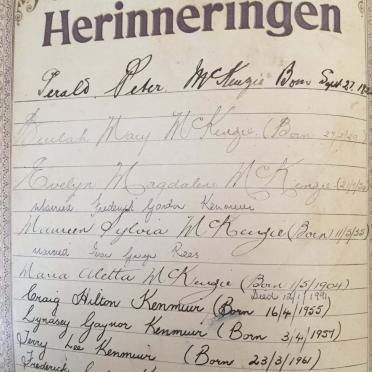 Herinneringen
Perald Peter McKenzie Born Sept 27.
Beulah Mary McKenzie (Born
Evelyn Magdalene McKenzie
Married Frederick Gordon Kenmuir
Maureen Sylvia McKenzie (Born 11/3/35)
married Ivor Gwyn Rees
Maria Aletta McKenzie (Born 1/5/1904)
Died 12/1/1991
Craig Hilton Kenmuir (Born 16/4/1955)
Lyndsey Gaynor Kenmuir (Born 3/4/1957)
Terry Lee Kenmuir (Born 23/3/1961)
Frederick